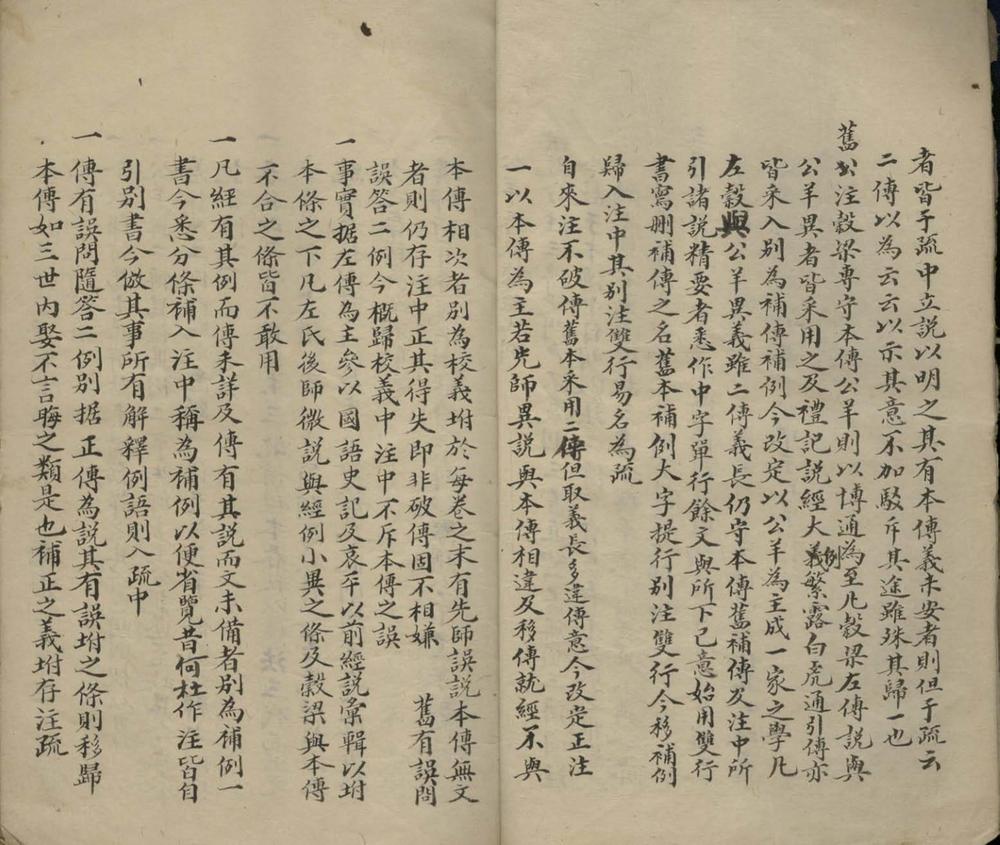 者皆于疏中立說以明之其有本傳義未安者則但于疏云
二傳以為云云以示其意不加駁斥其途雖殊其歸一也
舊公注穀梁專守本傳公羊則以博通為至凡穀梁左傳說與
公羊異者皆采用之及禮記說經大義例繁露白虎通引傳亦
皆采入別為補傳補例今改定以公羊為主成一家之學凡
左穀與公羊異義雖二傳義長仍守本傳舊補傳及注中所
引諸說精要者悉作中字單行餘文與所下己意始用雙行
書寫刪補傳之名舊本補例大字提行別注雙行今移補例
歸入注中其別注雙行易名為疏
自來注不破傳舊本采用二傳但取義長多違傳意今改定正注
一以本傳為主若先師異說與本傳相違及移傳就經不與
本傳相次者別為校義坿於每卷之末有先師誤說本傳無文
者則仍存注中正其得失即非破傳固不相嫌 舊有誤問
誤答二例今概歸校義中注中不斥本傳之誤
一事實据左傳為主參以國語史記及哀平以前經說彙輯以坿
本條之下凡左氏後師微說與經例小異之條及穀梁與本傳
不合之條皆不敢用
一凡經有其例而傳未詳及傳有其說而文未備者別為補例一
書今悉分條補入注中稱為補例以便省覽昔何杜作注皆自
引別書今倣其事所有解釋例語則入疏中
一傳有誤問隨答二例別据正傳為說其有誤坿之條則移歸
本傳如三世內娶不言晦之類是也補正之義坿存注疏